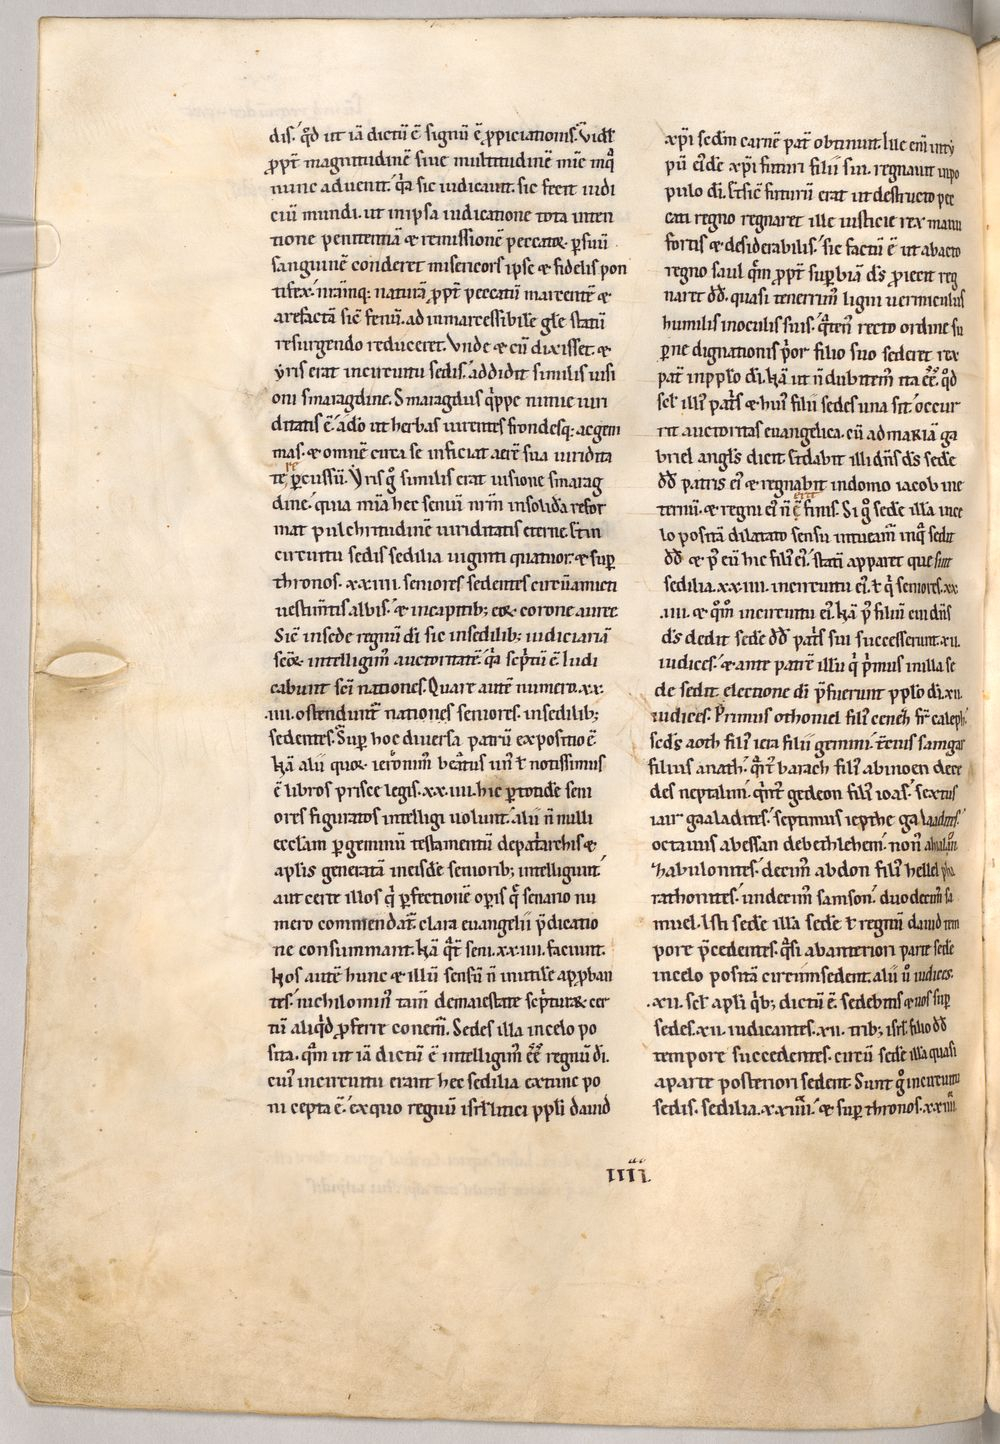 dis. qd̄ ut iā dictū ē signū ē ꝓpiciationis. Vidꝫ
ꝓpt̄ magnitudinē siue multitudinē mīe inq̄
nunc aduenit. q̄a sic iudicauit. sic fecit iudi
ciū mundi. ut in ipsa iudicatione tota inten
tione penitentiā ⁊ remissionē peccatoꝝ ꝑ suū
sanguinē conderet misericors ipse ⁊ fidelis pon
tifex. nr̄amq; naturā ꝓpt̄ peccatū marcentē ⁊
arefactā sic̄ fenū. ad inmarcessibile gl̄e statū
resurgendo reduceret. Vnde ⁊ cū dixisset. ⁊
yris erat incircuitu sedis. addidit similis uisi
oni smaragdine. Smaragdus q̄ppe nimie uiri
ditatis ē. adō ut herbas uirentes frondesq; ac gem
mas. ⁊ omnē circa se inficiat aerē sua uiridita
te reꝑcussū. Yris gͦ similis erat uisione smarag
dine. quia mīa hec seniū nr̄m insolida refor
mat pulchritudinē uiriditatis eterne. Et in
circuitu sedis sedilia uiginti quatuor. ⁊ suꝑ
thronos .xxiiii. seniores sedentes circūamicti
uestim̄tis albis. ⁊ in capitib; eoꝝ corone auree
Sic̄ insede regnū dī sic insedilib; iudiciariā
seōꝝ intelligim̄ auctoritatē. q̄a sc̄ptū ē Iudi
cabunt sc̄i nationes. Quare autē numero .xx.
.iiii. ostendunt̄ nationes seniores. insedilib;
sedentes. Suꝑ hoc diuersa patrū expositio ē.
Nā alii quoꝝ ieronim̄ beatus un̄ ⁊ notissimus
ē libros prisce legis .xx.iiii. hic ꝑtotidē seni
ores figuratos intelligi uolunt. alii n̄ nulli
eccl̄am ꝑ geminū testamentū depatarchis ⁊
apl̄is generatā in eisdē seniorib; intelligunt.
aut certe illos q̄ ꝑfectionē opis q̄ senario nu
mero commendat̄. clara euangelii p̄dicatio
ne consummant. Nā q̄t seni .xx.iiii. faciunt.
Nos autē hunc ⁊ illū sensū n̄ inutilē approban
tes. nichilomin̄ tam̄ demaiestate sc̄pturaꝝ cer
tū aliq̄d ꝓferre conem̄. Sedes illa incelo po
sita. q̄m ut iā dictū ē intelligim̄ ēē regnū dī.
cui̅ incircuitu erant hec sedilia extunc po
ni cepta ē. exquo regnū isrl̄itici ppl̄i dauid
xp̄i sed̄m carnē pat̄ obtinuit. hic eni̅
pū eidē xp̄i futuri filii sui. regnauit inpo
pulo dī. Et sic̄ futurū erat ut destructo pec
cati regno regnaret ille iusticie rex manu
fortis ⁊ desiderabilis. sic factū ē ut abiecto
regno saul q̄m ꝓpt̄ suꝑbiā dꝭ ꝓiecit reg
naret dd̄. quasi tenerrim̄ ligni uermiculus
humilis inoculis suis. q̄ten̄ recto ordine su
ꝑne dignationis p̄or filio suo sederet rex
pat̄ inpplo dī. Nā ut n̄ dubitem̄ ita ēē. q̄d
sc̄l illi̅ pat̄s ⁊ hui̅ filii sedes una sit. occur
rit auctoritas euangelica. cū ad mariā ga
briel angl̄s dicit Et dabit illi dn̄s dꝭ sedē
dd̄ patris ei̅ ⁊ regnabit indomo iacob ine
ternū. ⁊ regni ei̅ n̄ erit finis. Si gͦ sedē illā ince
lo positā dilatato sensu intueam̄ inq̄ sedit
dd̄ ⁊ p̄ eū hic fili̅ ei̅. statī apparet que sint
sedilia .xx.iiii. incircuitu ei̅. ⁊ q̄ seniores .xx
.iiii. ⁊ q̄m̄ incircuitu ei̅. Nā p̄ filiū cui dn̄s
dꝭ dedit sedē dd̄ pat̄s sui successerunt .xii.
iudices. ⁊ ante patrē illū q̄ p̄mus in illa se
de sedit. electione dī p̄fuerunt pplo dī .xii.
iudices. Primus othoniel fili̅ cenez fr̄ caleph.
scd̄s aoth fili̅ iera filii gemini. t̄cius samgar
filius anath. q̄rt̄ barach fili̅ abinoen dece
des neptalim. q̄nt̄ gedeon fili̅ ioas. sextus
iair gaaladites. septimus iepthe galaadites.
octauus abessan debethlehem. non̄
zabulonites. decim̄ abdon fili̅ hellel pha
rathonites. undecim̄ samson. duodecim̄ sa
muel. Isti sedē illā sedē ⁊ regnū dauid tem
pore p̄cedentes. q̄si abanteriori parte sedē
incelo positā circūmsedent. alii ū iudices.
.xii. sc̄l apl̄i q̄b; dictū ē. sedebitis ⁊ uos suꝑ
sedes .xii. iudicantes .xii. trib; isrl̄. filio dd̄
tempore succedentes. circū sedē illā quasi
aparte posteriori sedent. Sunt gͦ incircuitu
sedis. sedilia .xxiiii. ⁊ suꝑ thronos .xxiiii.
IIII.